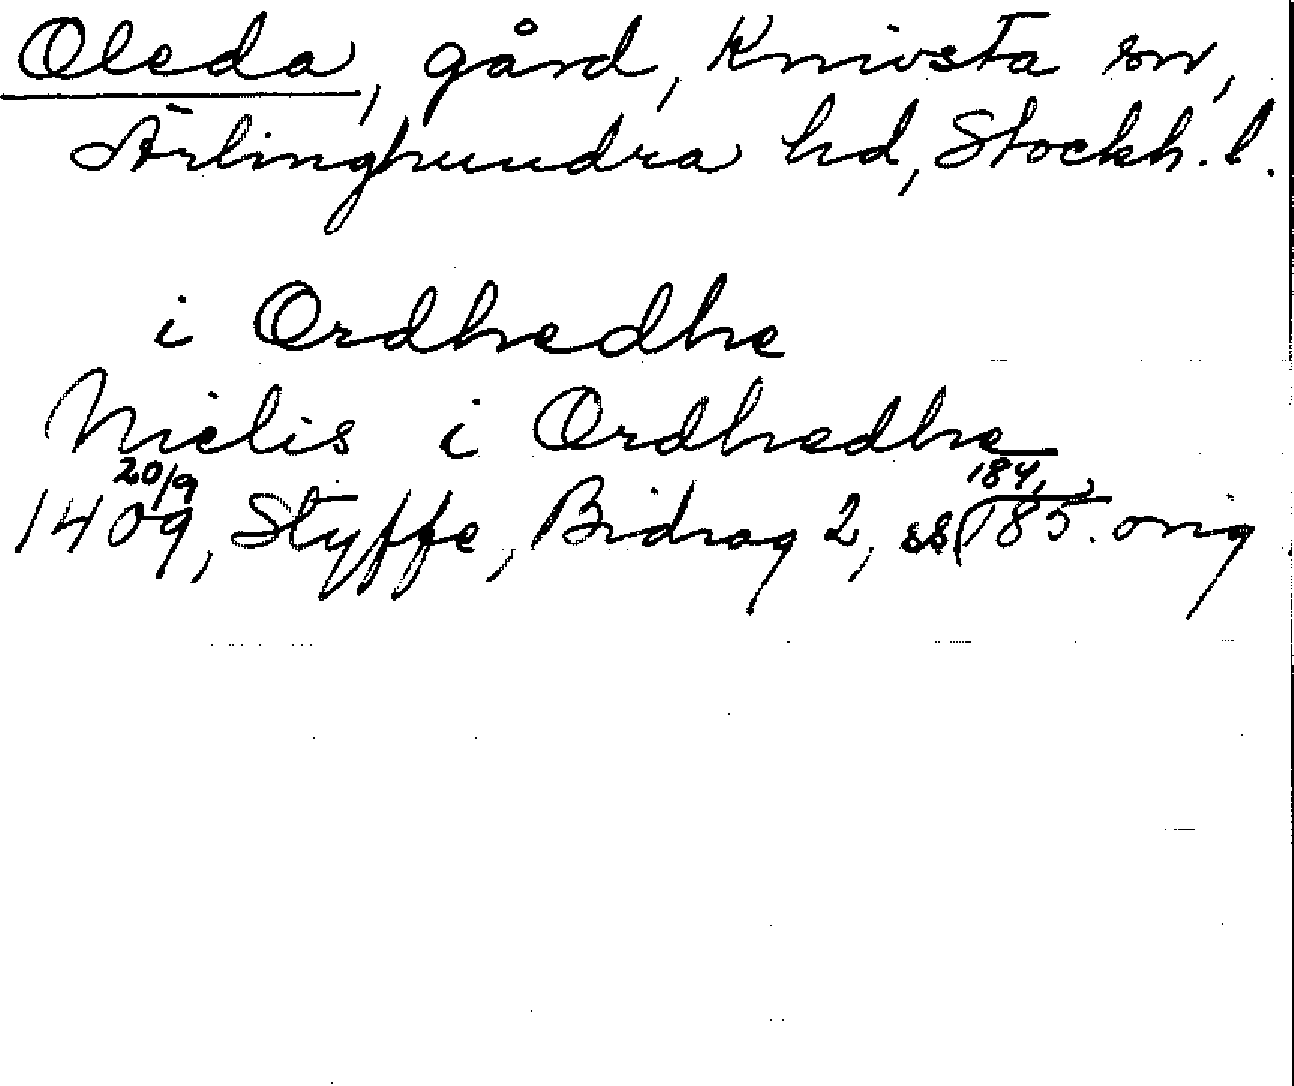 Oleda, gård, Knivsta sn,
Ärlinghundra hd, Stockh. l.
i Ordhedhe
Nielis i Ordhedhe
20/9 184,
1409, Styffe, Bidrag 2, ss 185. orig